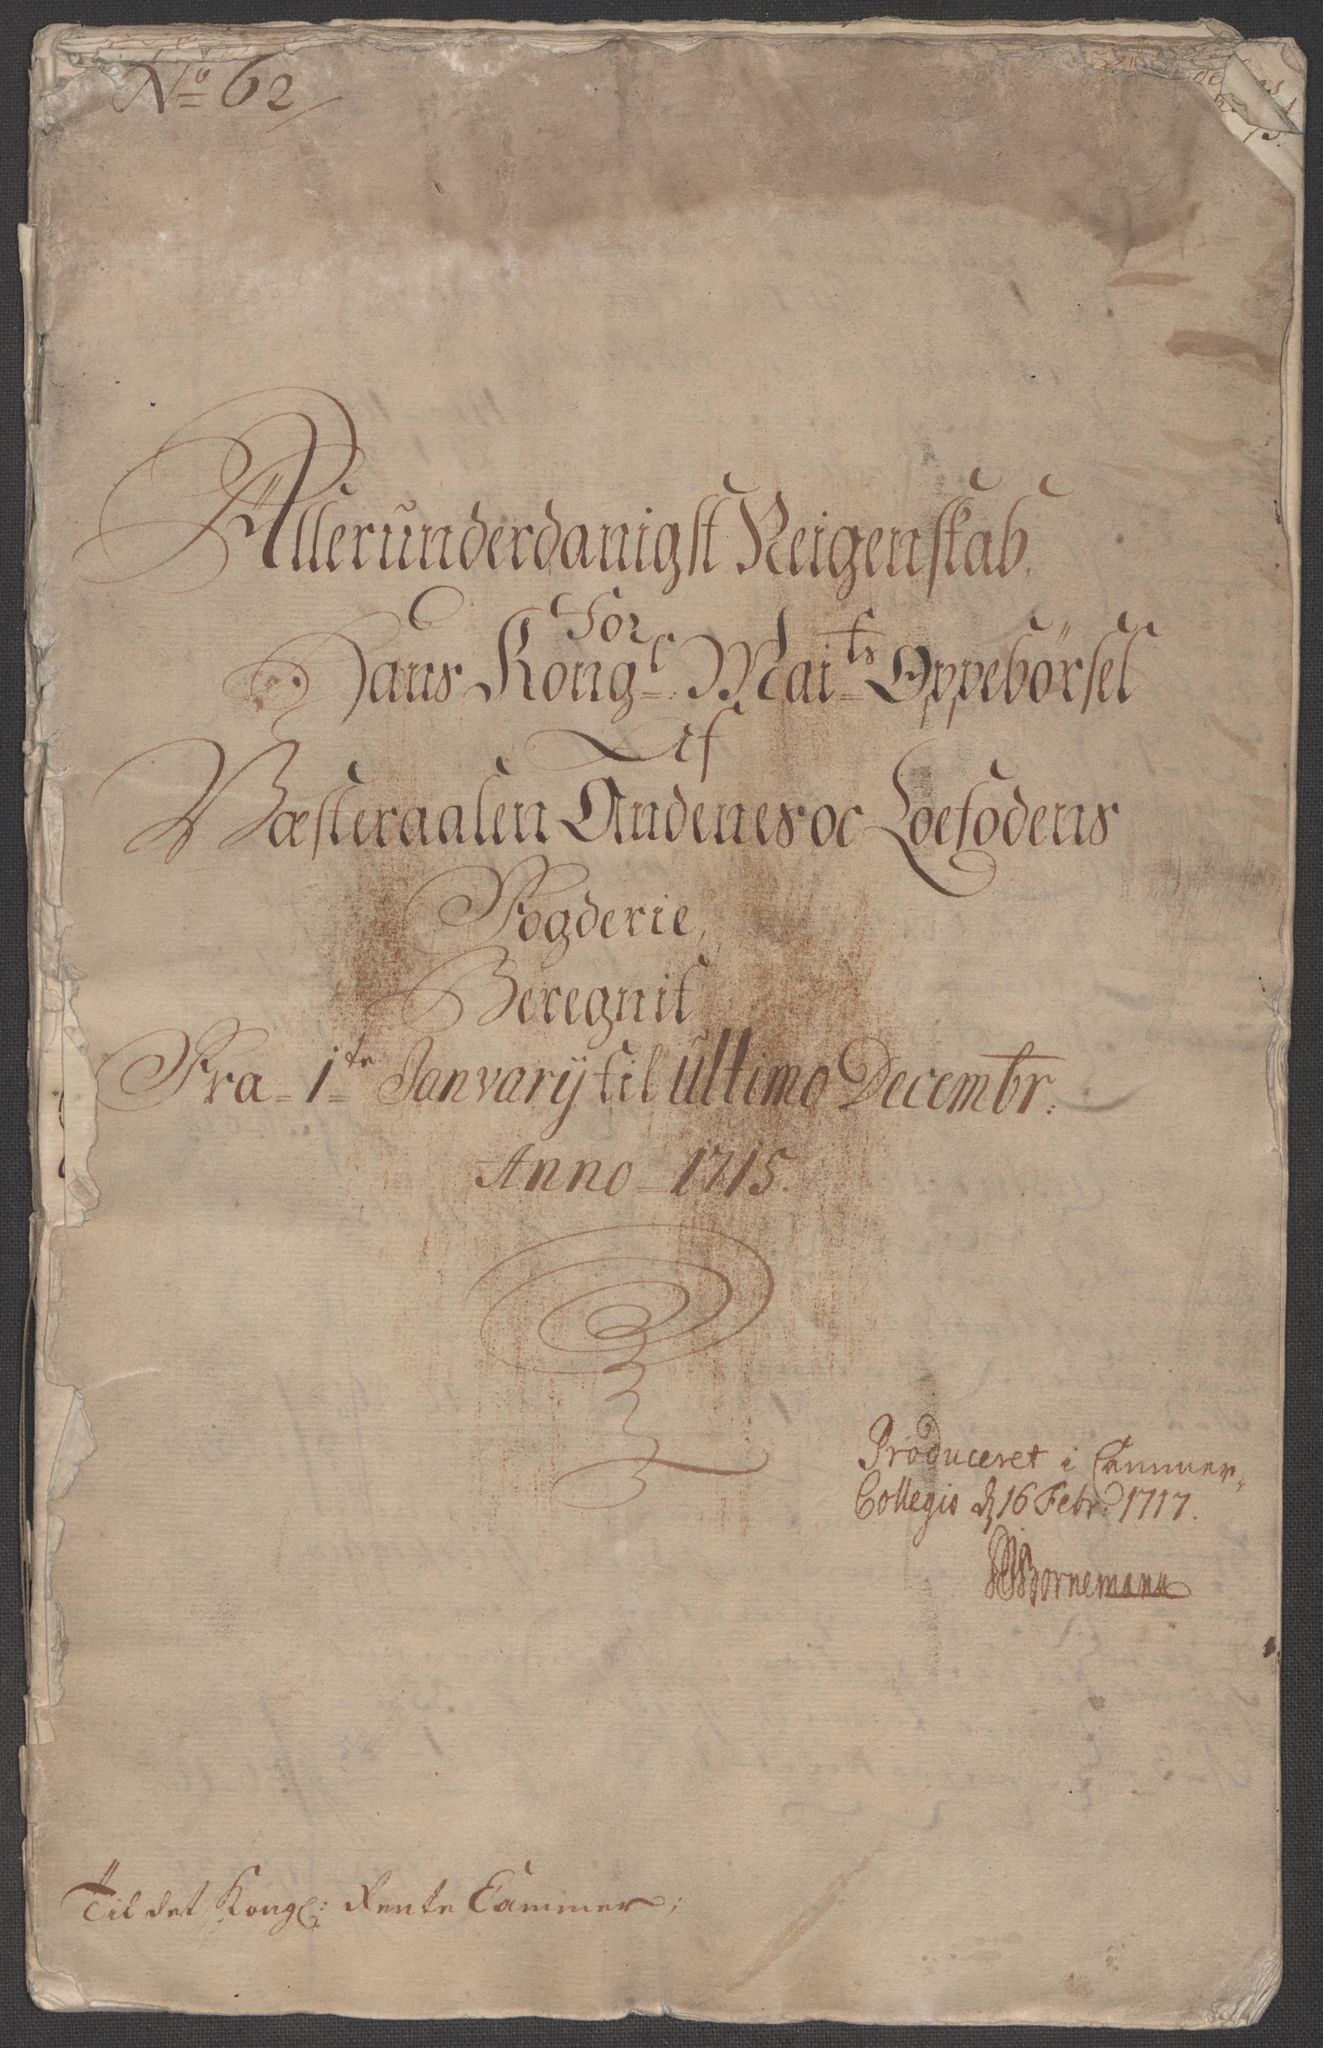 No 62
Allerunderdanigst Reigenskab,
For
Hans Kongl. Maits Oppebörsel
Af
Væsteraalen Andenes oc Loefodens
Fogderie,
Beregnit
Fra 1te Janvarij til ultimo Decembr:
Anno 1715.
Produceret i Cammer-
Collegio d 16 Febr: 1717.
Bornemann
Til det Kongl: Rente Cammer;